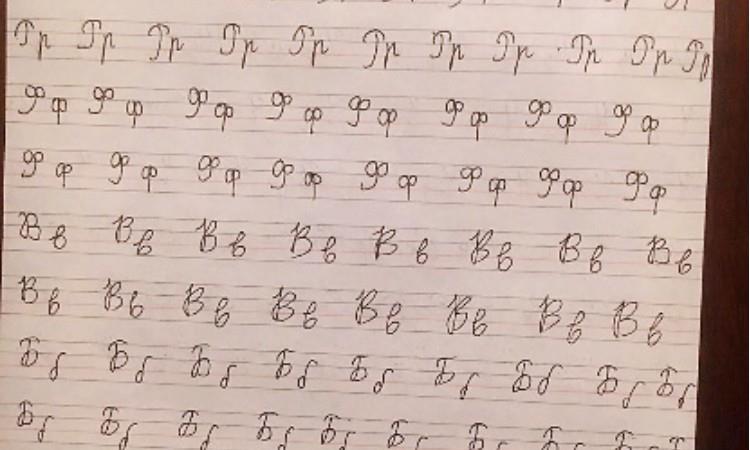 Рр Рр Рр Рр Рр Рр Рр Рр Рр Рр Рр
Фф Фф Фф Фф Фф Фф Фф Фф
Фф Фф Фф Фф Фф Фф Фф Фф
Вв Вв Вв Вв Вв Вв Вв Вв
Вв Вв Вв Вв Вв Вв Вв Вв
Бб Бб Бб Бб Бб Бб Бб Бб Бб
Бб Бб Бб Бб Бб Бб